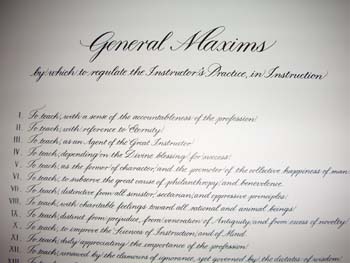 General Maxims
by which to regulate the Instructor's Practice, in Instruction
I. To teach, with a sense of the accountableness of the profession
II. To teach, with reference to Eternity
III. To teach, as an Agent of the Great Instructor
IV. To teach, depending on the Divine blessing for success
V. To teach, as the former of character, and the promoter of the collective happiness of man
VI. To teach, to subserve the great cause of philanthropy and benevolence
VII. To teach, distinctive from all sinister, sectarian, and oppressive principles
VIII. To teach, with charitable feelings toward all rational and animal beings
IX. To teach, distinct from prejudice, from veneration of Antiquity, and from excess of novelty
X. To teach, to improve the Sciences of Instruction, and of Mind
XI. To teach, duly appreciating the importance of the profession
XII. To teach, unawed by the clamours of ignorance, yet governed by the dictates of wisdom
XIII.